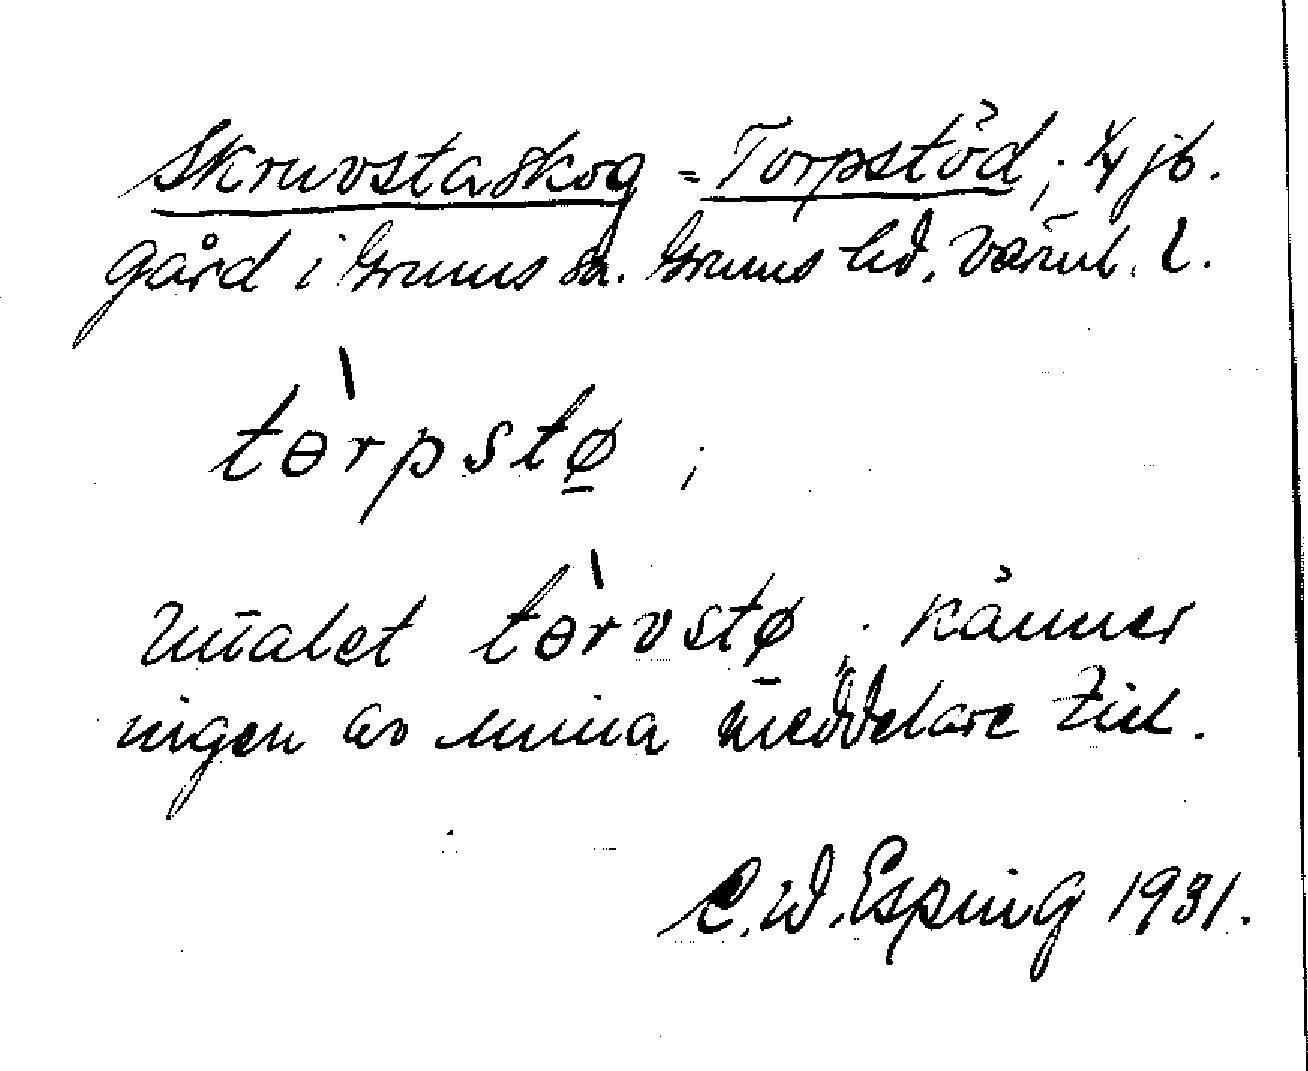 Skruvstaskog = Torpstöd; 1/4 jb.
gård i Grums sn. Grums hd. Värml. l.
tɵ̀rpstø̱ ;
Uttalet tɵ̀rvstø̱ känner
ingen av mina meddelare till.
C. W. Esping 1931.